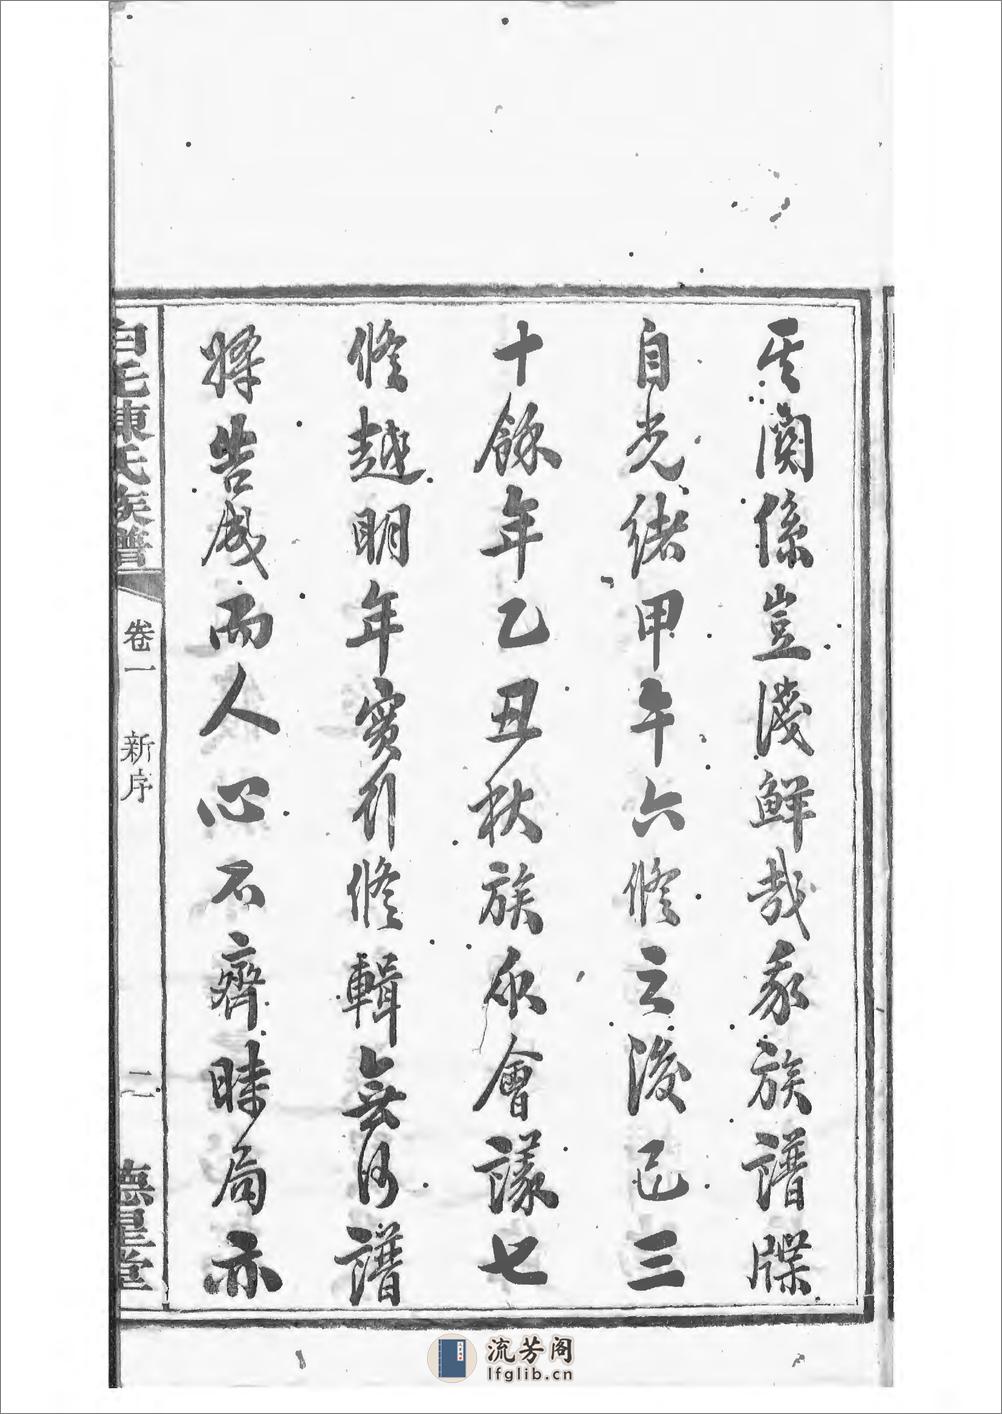 其關係豈淺鮮哉我族譜牒
自光緒甲午六修之後已三
十餘年乙丑秋族众會議七
修越明年實行修輯無何譜
將告成而人心不齊時局亦
白毛陳氏族譜
卷一 新序
二
德星堂
流芳阁
lfglib.cn